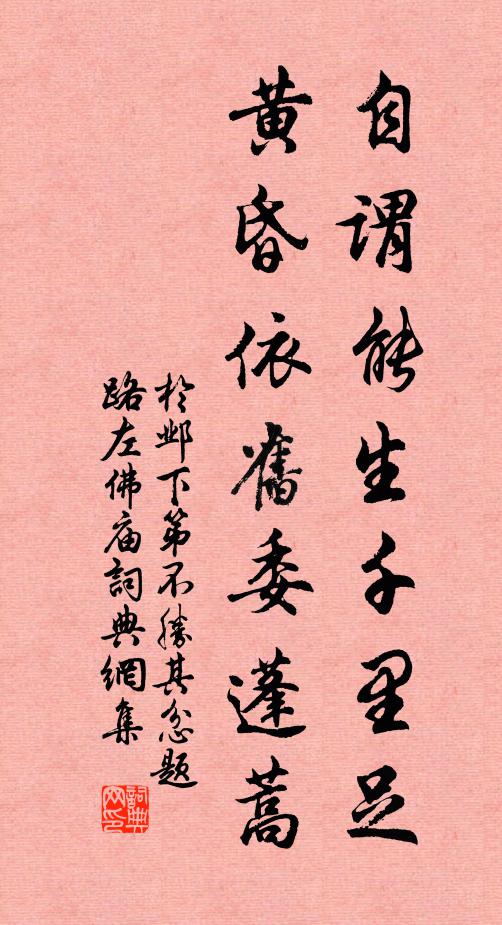 自谓能生千里足
黄昏依旧委蓬蒿
於邺下第不勝其忿题
路左佛庙詞典網集
詞典网印